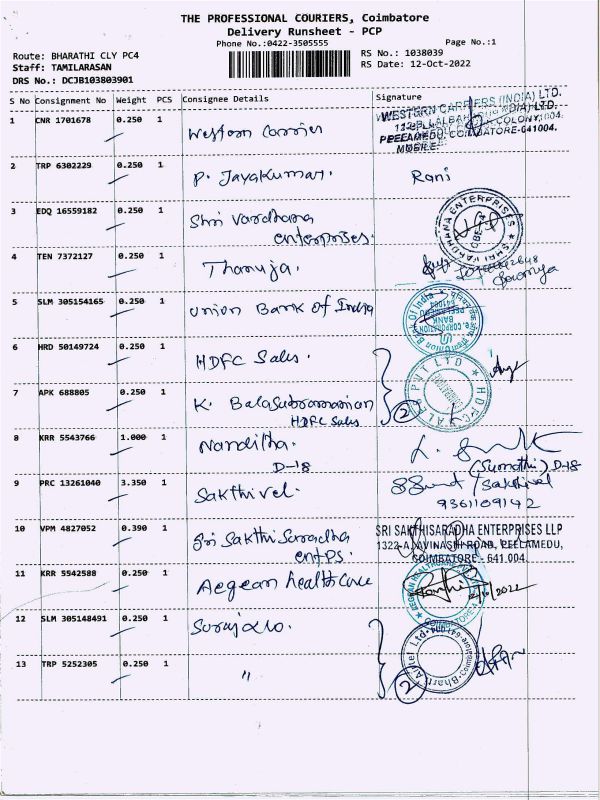 THE PROFESSIONAL COURIERS, Coimbatore
Delivery Runsheet - PCP
Phone No.:0422-3505555
Page No.:1
Route: BHARATHI CLY PC4
RS No.: 1038039
Staff: TAMILARASAN
RS Date: 12-Oct-2022
DRS No.: DCJB103803901
S No Consignment No Weight PCS Consignee Details Signature
1 CNR 1701678 0.250 1 Western Carrier
WESTERN CARRIERS (INDIA) LTD.
PEELAMEDU, COIMBATORE-641004.
MOBILE:
2 TRP 6302229 0.250 1 P. Jayakumar. Rani
3 EDQ 16559182 0.250 1 Shri Vardhana
enterprises.
SHRI VARDHANA ENTERPRISES
CBE-4
4 TEN 7372127 0.250 1 Thanuja.
Sowmya
5 SLM 305154165 0.250 1 Union Bank of India
Union Bank Of India
6 HRD 50149724 0.250 1 HDFC Sales.
7 APK 688805 0.250 1 K. Balasubramanian
HDFC Sales
HDFC SALES PVT LTD
2
8 KRR 5543766 1.000 1 Nanditha.
D-18
(Sumathi) D-18
9 PRC 13261040 3.350 1 Sakthivel.
Sakthivel
9361109142
10 VPM 4827052 0.390 1 Sri Sakthi Saradha
entPs.
SRI SAKTHISARADHA ENTERPRISES LLP
1322-A, AVINASHI ROAD, PEELAMEDU,
COIMBATORE - 641 004.
11 KRR 5542588 0.250 1 Aegean healthcare
12 SLM 305148491 0.250 1
13 TRP 5252305 0.250 1 "
Bharti Airtel Ltd
2